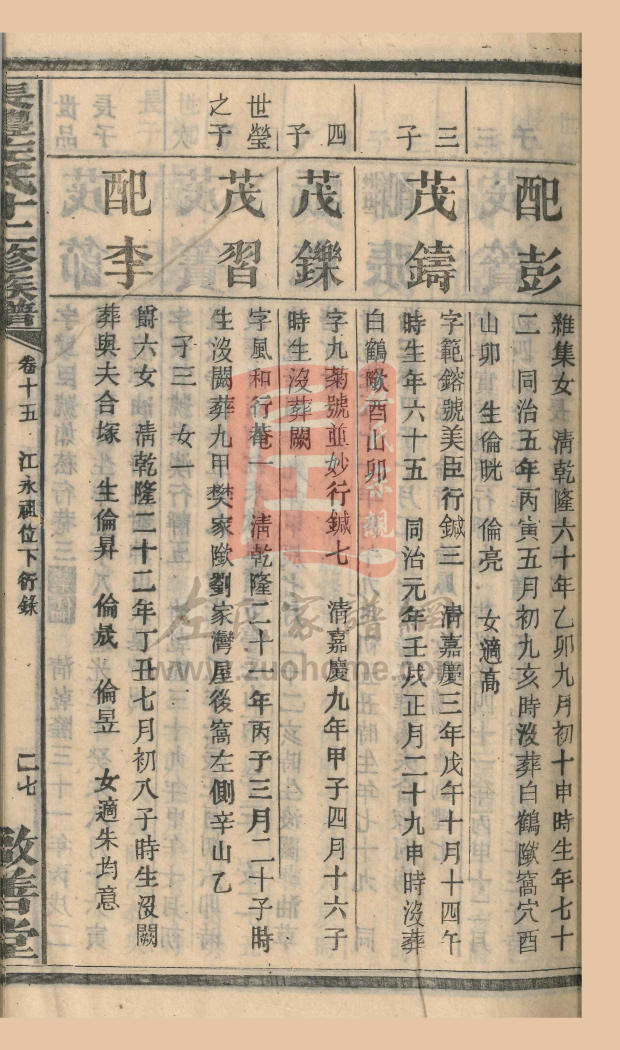 配彭
雜集女　清乾隆六十年乙卯九月初十申時生年七十
二　同治五年丙寅五月初九亥時沒葬白鶴歟窩穴酉
山卯　生倫晄　倫亮　女適高
三子
茂鑄
字範鎔號美臣行鍼三　清嘉慶三年戊午十月十四午
時生年六十五　同治元年壬戌正月二十九申時沒葬
白鶴歟酉山卯
四子
茂鑠
字九菊號並妙行鍼七　清嘉慶九年甲子四月十六子
時生沒葬闕
世瑩之子
茂習
字風和行菴一　清乾隆二十一年丙子三月二十子時
生沒闕葬九甲樊家歟劉家灣屋後窩左側辛山乙
子三　女一
配李
爵六女　清乾隆二十二年丁丑七月初八子時生沒闕
葬與夫合塚　生倫昇　倫晟　倫昱　女適朱均意
長豐左氏十二修族譜
卷十五　江永祖位下衍錄
二七
啟善堂
左氏家譜網
www.zuohome.com